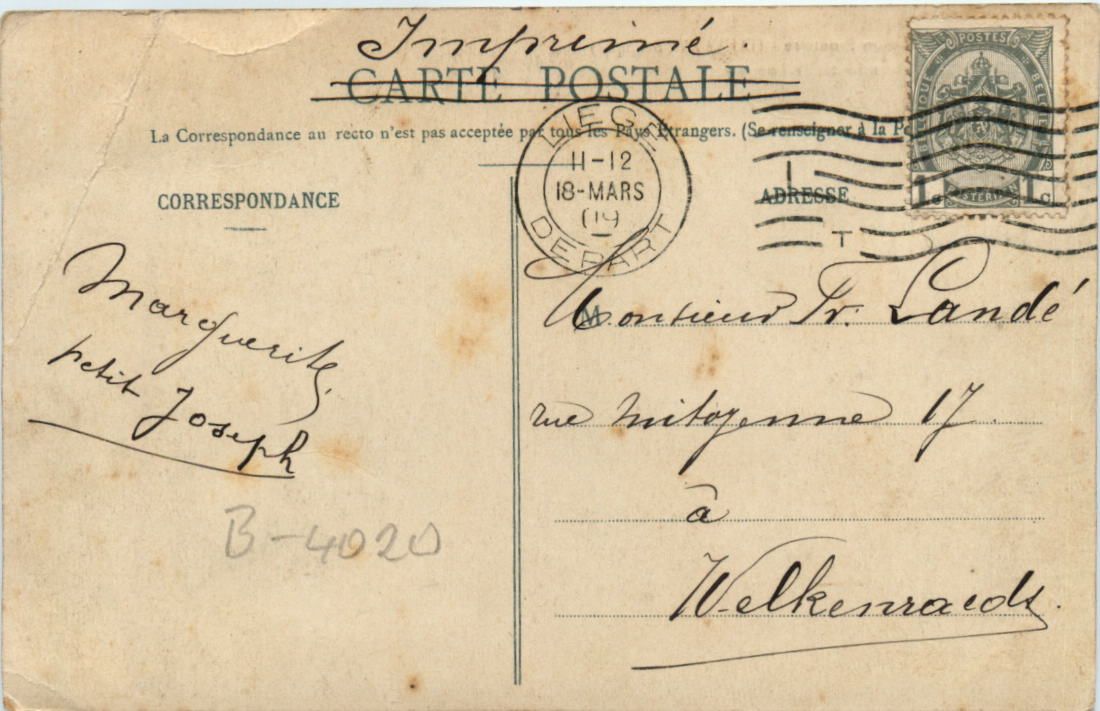 Imprimé.
CARTE POSTALE
La Correspondance au recto n'est pas acceptée par tous les Pays Étrangers. (Se renseigner à la
POSTES
BELGIQUE
1c 1c
LIEGE
11-12
18-MARS
DEPART
L
T
CORRESPONDANCE
ADRESSE
Marguerite,
petit Joseph
B-4020
Monsieur Fr. Landé
rue mitoyenne 17.
à
Welkenraedt.